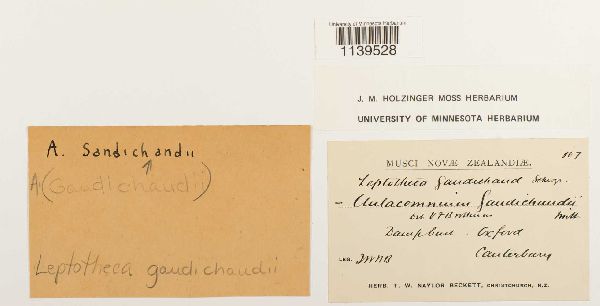 University of Minnesota Herbarium
1139528
J. M. HOLZINGER MOSS HERBARIUM
UNIVERSITY OF MINNESOTA HERBARIUM
A. Sandichandii
A (Gaudichaudii)
Leptotheca gaudichaudii
MUSCI NOVÆ ZEALANDIÆ.
Leptotheca gaudichaud Schwgr.
Aulacomnium Gaudichaudii Mitt
Damp bank. Oxford
Canterbury
LEG. TWNB
HERB. T. W. NAYLOR BECKETT, CHRISTCHURCH, N.Z.